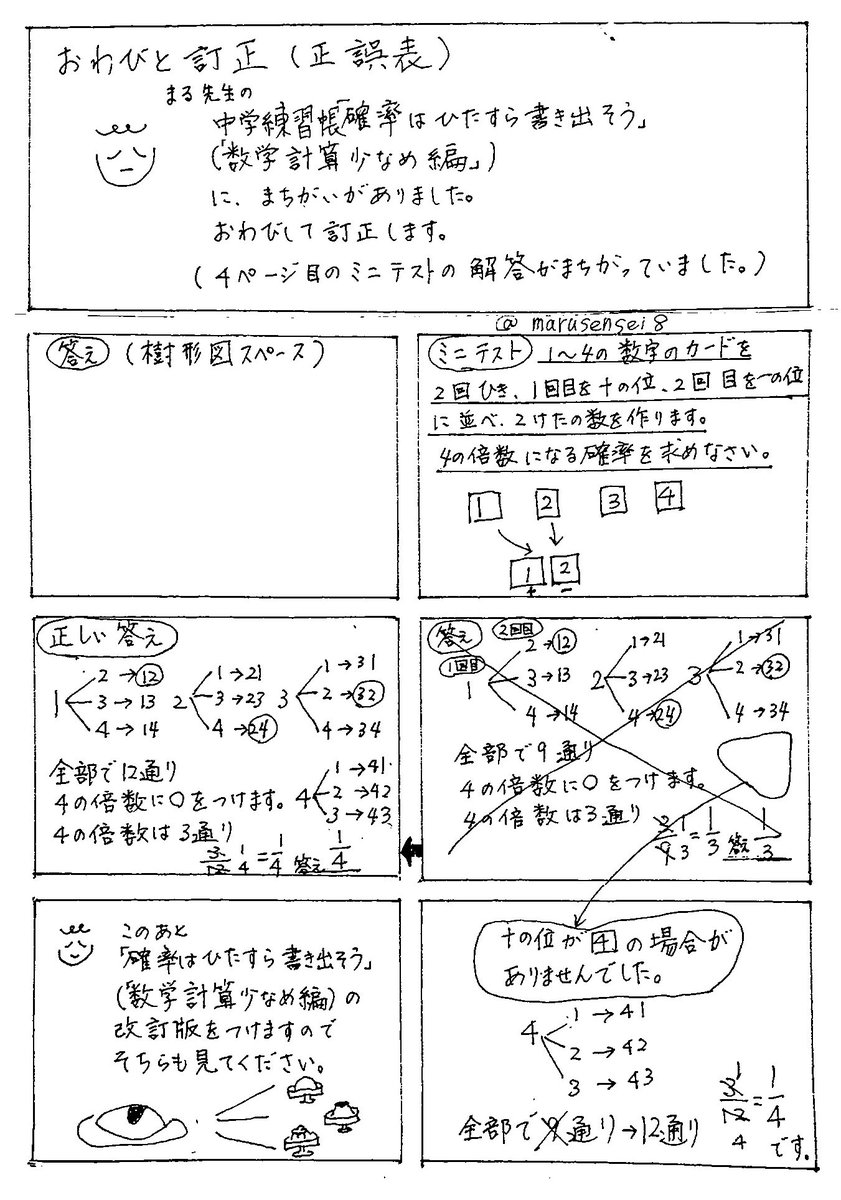 おわびと訂正（正誤表）
まる先生の
中学練習帳「確率はひたすら書き出そう」
(「数学計算少なめ編」)
に、まちがいがありました。
おわびして訂正します。
(4ページ目のミニテストの解答がまちがっていました。)
@marusensei8
ミニテスト 1～4の数字のカードを
2回ひき、1回目を十の位、2回目を一の位
に並べ、2けたの数を作ります。
4の倍数になる確率を求めなさい。
1 2 3 4
1 2
十 一
答え (樹形図スペース)
答え 2回目
1回目
1
2→12
3→13
4→14
2
1→21
3→23
4→24
3
1→31
2→32
4→34
全部で9通り
4の倍数に○をつけます。
4の倍数は3通り
3/9 1/3=1/3 答え 1/3
正しい答え
1
2→12
3→13
4→14
2
1→21
3→23
4→24
3
1→31
2→32
4→34
全部で12通り
4の倍数に○をつけます。
4の倍数は3通り
4
1→41
2→42
3→43
3/12 1/4=1/4 答え 1/4
十の位が4の場合が
ありませんでした。
4
1→41
2→42
3→43
全部で9通り→12通り
3/12 1/4=1/4
です。
このあと
「確率はひたすら書き出そう」
(数学計算少なめ編)の
改訂版をつけますので
そちらも見てください。